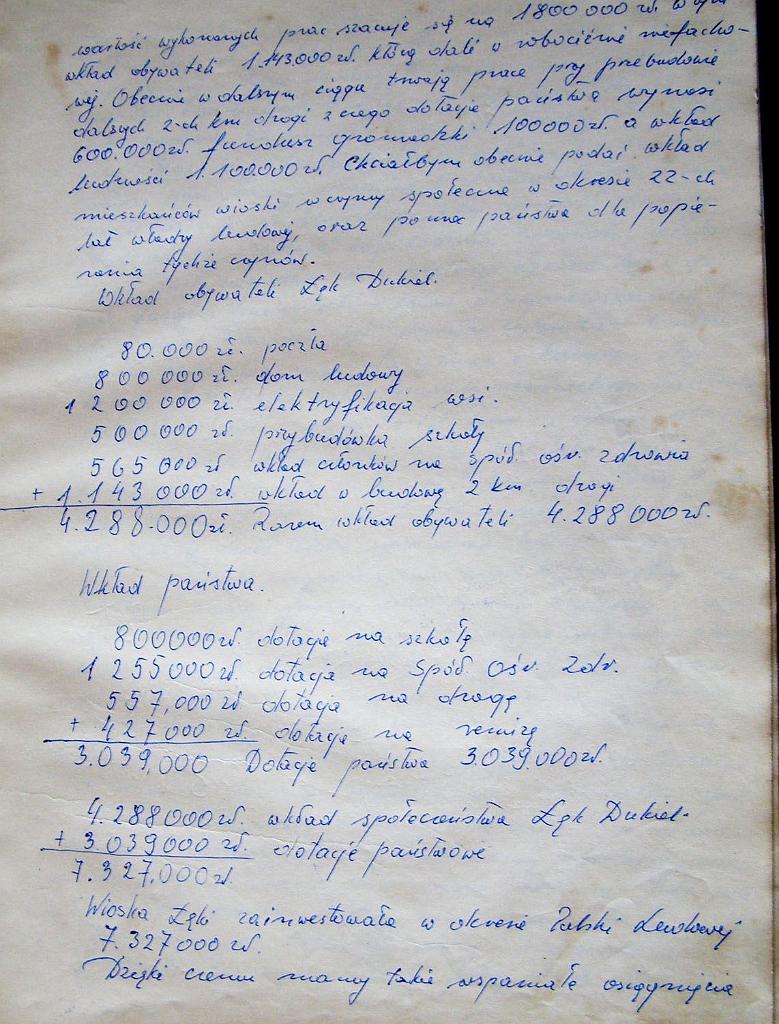 wartość wykonanych prac szacuje się na 1800 000 zł. w tym
wkład obywateli 1.143.000 zł. którą dali w robociźnie niefacho-
wej. Obecnie w dalszym ciągu trwają prace przy przebudowie
dalszych 2-ch km drogi z czego dotacje państwa wynosi
600.000 zł. fundusz gromadzki 100000 zł. a wkład
ludności 1.100.000 zł. Chciałbym obecnie podać wkład
mieszkańców wioski w czyny społeczne w okresie 22-ch
lat władzy ludowej, oraz pomoc państwa dla popie-
rania tychże czynów.
Wkład obywateli Łęk Dukiel.
80.000 zł. poczta
800 000 zł. dom ludowy
1 200 000 zł. elektryfikacja wsi.
500 000 zł. przybudówka szkoły
565 000 zł wkład członków na Spół. ośr. zdrowia
+ 1.143 000 zł. wkład w budowę 2 km drogi
4.288.000 zł. Razem wkład obywateli 4.288 000 zł.
Wkład państwa.
800000 zł. dotacje na szkołę
1 255000 zł. dotacja na Spół. Ośr. Zdr.
557,000 zł dotacja na drogę
+ 427000 zł. dotacje na remizę
3.039,000 Dotacje państwa 3.039.000 zł.
4.288000 zł. wkład społeczeństwa Łęk Dukiel.
+ 3.039000 zł. dotacje państwowe
7.327,000 zł
Wioska Łęki zainwestowała w okresie Polski Ludowej
7.327000 zł.
Dzięki czemu mamy takie wspaniałe osiągnięcia